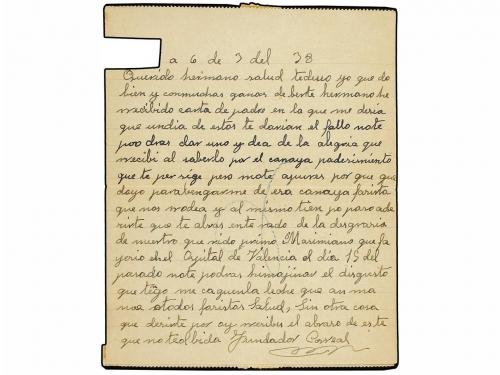 a 6 de 3 del 38
Querido hermano salud tedeseo yo que do
bien y conmuchas ganas de berte hermano he
recibido carta de padre en la que me deria
que undia de estos te darian el fallo note
poodras dar uno y dea de la alegria que
recibi al saberlo por el canaya paderimiento
que te per sige pero mate apures por que que
doyo parabengarme de esa canaya farista
que nos rodea y al mismo tien po paso ade
rirte que te abras ente rado de la desgraria
de nuestro que rido primo Marimiano que fa
yerio en el Ospital de Valencia el dia 15 del
parado note podras himajinar el disgusto
que tiego me caguenla leche que an ma
nos atodos faristas Salud, Sin otra cosa
que derirte por oy recibes el abraro de este
que noteolbida Fundador Correal